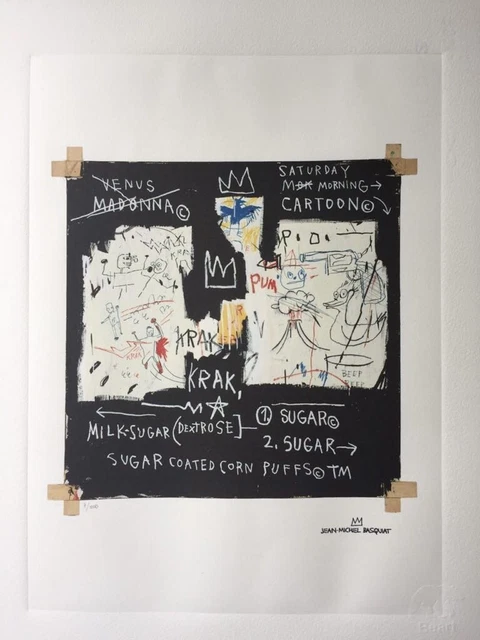 VENUS
MADONNA©
SATURDAY
MOK MORNING→
CARTOON©
P.O.
PUM
KRAK
KRAK,
BEEF
BEEF
MILK-SUGAR (DEXTROSE)
① SUGAR©
2. SUGAR→
SUGAR COATED CORN PUFFS© TM
JEAN-MICHEL BASQUIAT